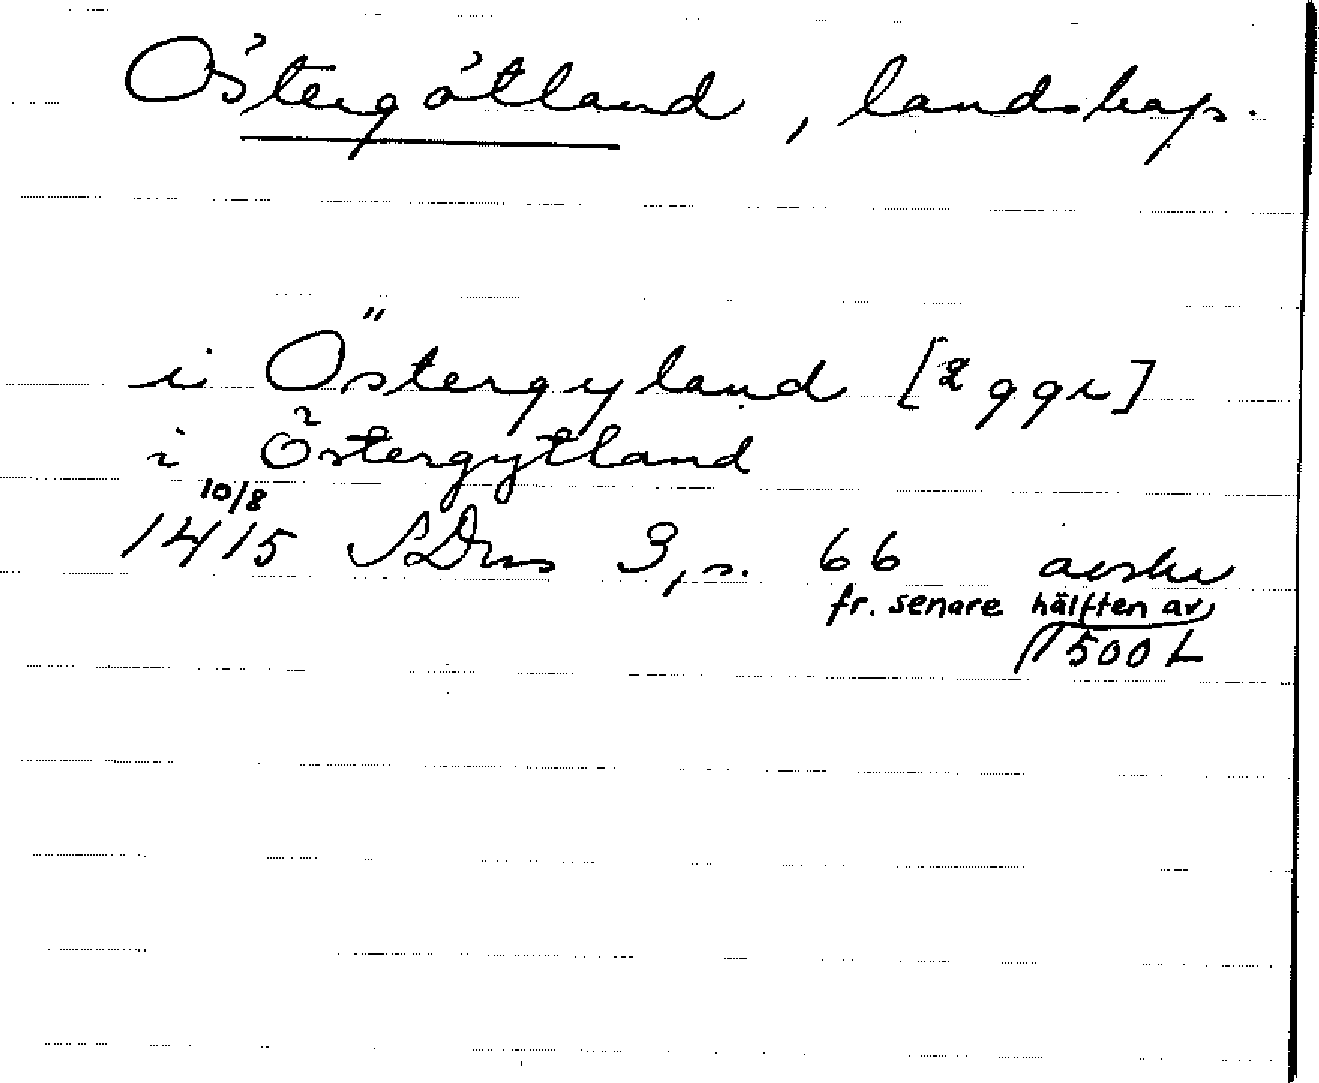 Östergötland, landskap.
i Östergyland [2 ggr]
i Östergytland
10/8
1415 SDns 3, s. 66 avskr
fr. senare hälften av
1500 t